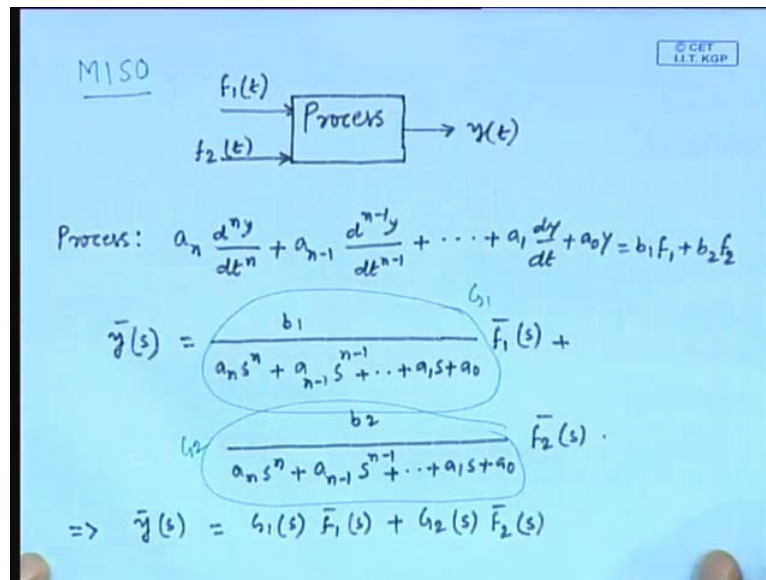 © CET
I.I.T. KGP
MISO
f₁(t)
Process
y(t)
f₂(t)
Process: aₙ dⁿy/dtⁿ + aₙ₋₁ dⁿ⁻¹y/dtⁿ⁻¹ + ⋯ + a₁ dy/dt + a₀y = b₁f₁ + b₂f₂
G₁
ȳ(s) = b₁/(aₙsⁿ + aₙ₋₁sⁿ⁻¹ + ⋅⋅ + a₁s + a₀) f̄₁(s) +
G₂ b₂/(aₙsⁿ + aₙ₋₁sⁿ⁻¹ + ⋅⋅ + a₁s + a₀) f̄₂(s) .
=> ȳ(s) = G₁(s) f̄₁(s) + G₂(s) f̄₂(s)